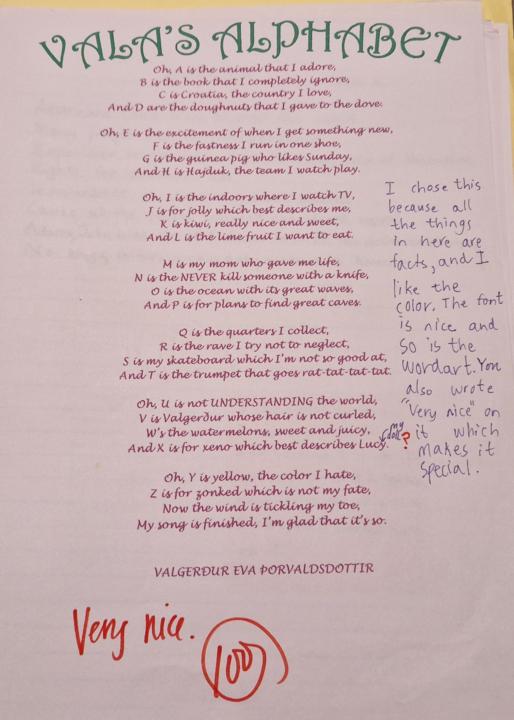 VALA'S ALPHABET
Oh, A is the animal that I adore,
B is the book that I completely ignore,
C is Croatia, the country I love,
And D are the doughnuts that I gave to the dove.
Oh, E is the excitement of when I get something new,
F is the fastness I run in one shoe,
G is the guinea pig who likes Sunday,
And H is Hajduk, the team I watch play.
Oh, I is the indoors where I watch TV,
J is for jolly which best describes me,
K is kiwi, really nice and sweet,
And L is the lime fruit I want to eat.
M is my mom who gave me life,
N is the NEVER kill someone with a knife,
O is the ocean with its great waves,
And P is for plans to find great caves.
Q is the quarters I collect,
R is the rave I try not to neglect,
S is my skateboard which I'm not so good at,
And T is the trumpet that goes rat-tat-tat-tat.
Oh, U is not UNDERSTANDING the world,
V is Valgerður whose hair is not curled,
W's the watermelons, sweet and juicy,
And X is for xeno which best describes Lucy.
my
doll
?
Oh, Y is yellow, the color I hate,
Z is for zonked which is not my fate,
Now the wind is tickling my toe,
My song is finished, I'm glad that it's so.
VALGERÐUR EVA ÞORVALDSDOTTIR
I chose this
because all
the things
in here are
facts, and I
like the
color. The font
is nice and
so is the
wordart. You
also wrote
"Very nice" on
it which
makes it
special.
Very nice.
100